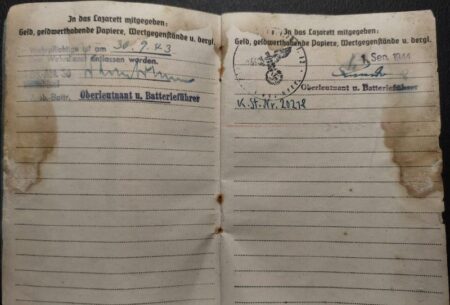 In das Lazarett mitgegeben:
Geld, geldwerthabende Papiere, Wertgegenstände u. dergl.
Wehrpflichtige ist am 30.9.43
entlassen worden.
Battr. Oberleutnant u. Batterieführer
In das Lazarett mitgegeben:
Geld, geldwerthabende Papiere, Wertgegenstände u. dergl.
1. Sep. 1944
Oberleutnant u. Batterieführer
K.St.Nr. 20218